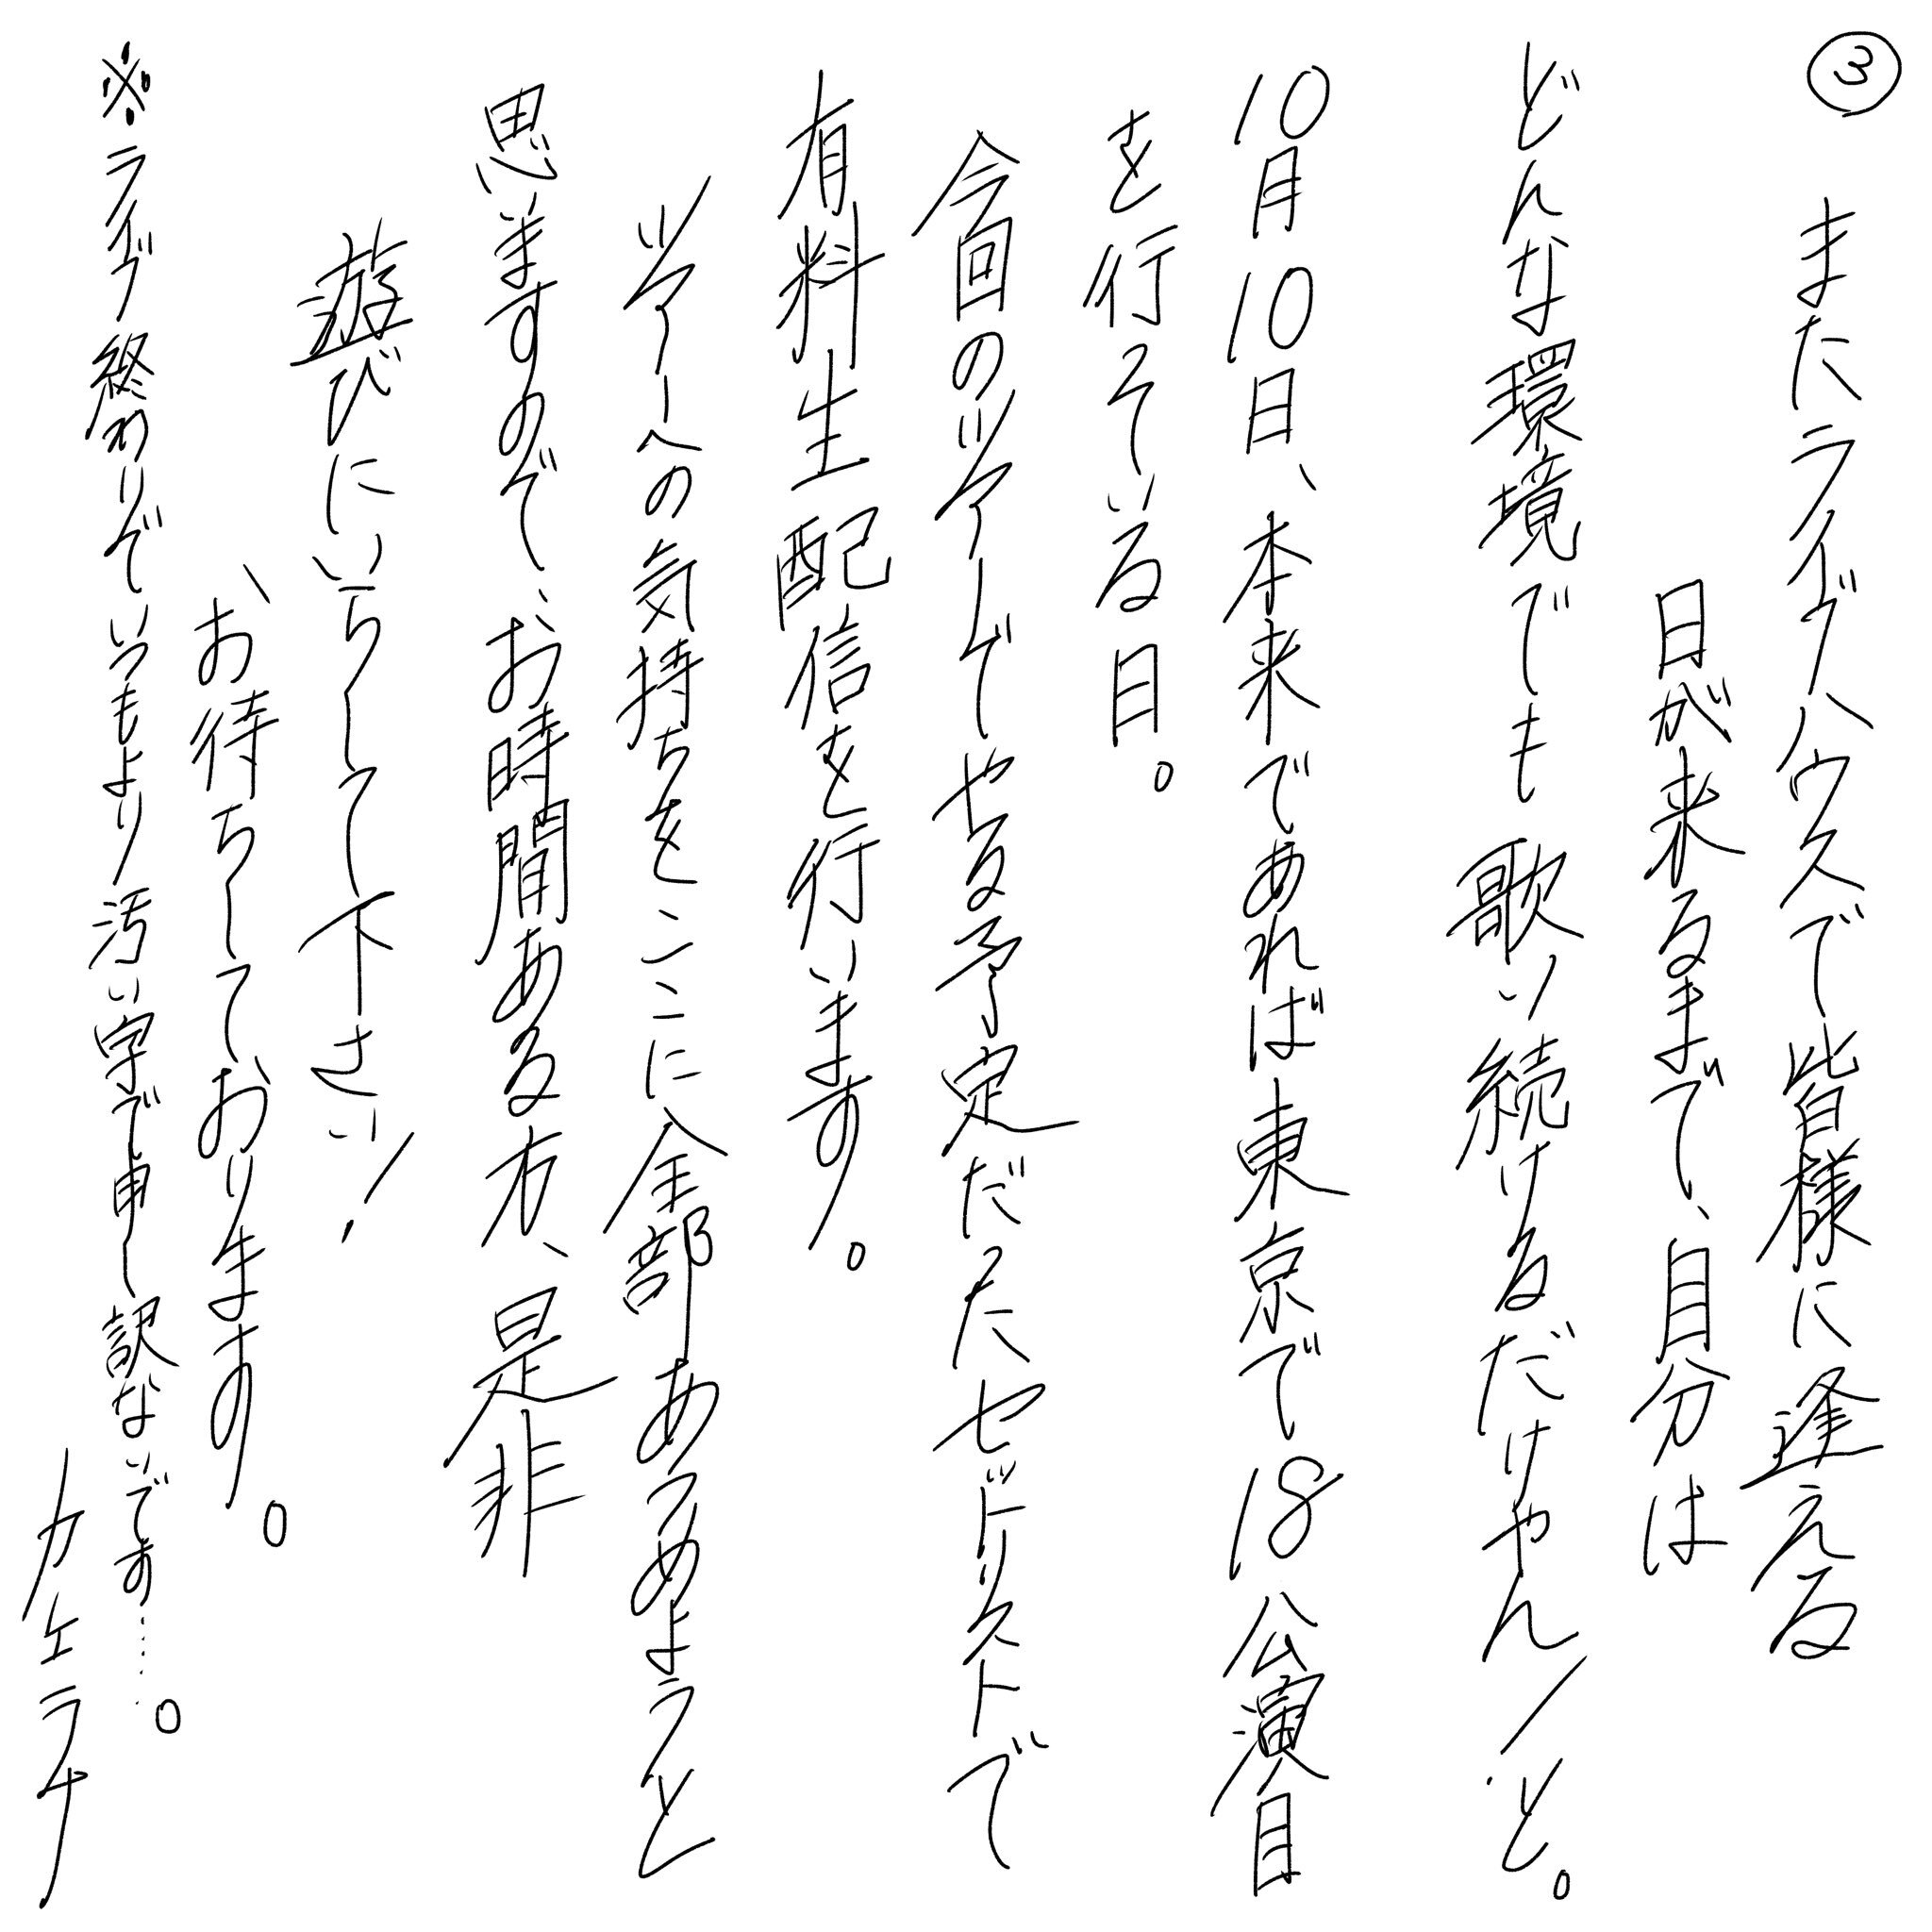 ③
またライブハウスで皆様に逢える
日が来るまで、自分は
どんな環境でも歌い続けるだけやん!と。
10月10日、本来であれば東京で18公演目
を行っている日。
今回のツアーでやる予定だったセットリストで
有料生配信を行います。
ツアーへの気持ちをここに全部あつめようと
思いますので、お時間ある方、是非
遊びにいらして下さい!
お待ちしております。
※ライブ終わりでいつもより汚い字で申し訳ないです……。
カエラ